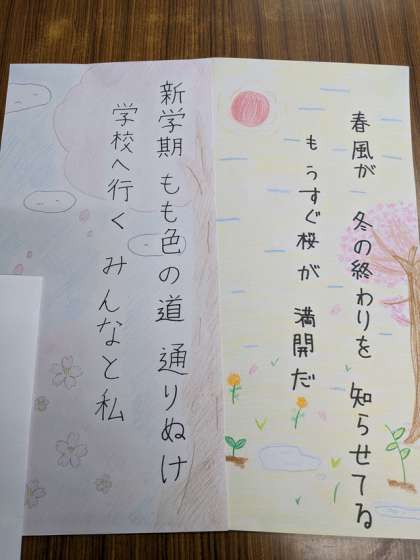 春風が 冬の終わりを 知らせてる
もうすぐ桜が 満開だ
新学期 もも色の道 通りぬけ
学校へ行く みんなと私